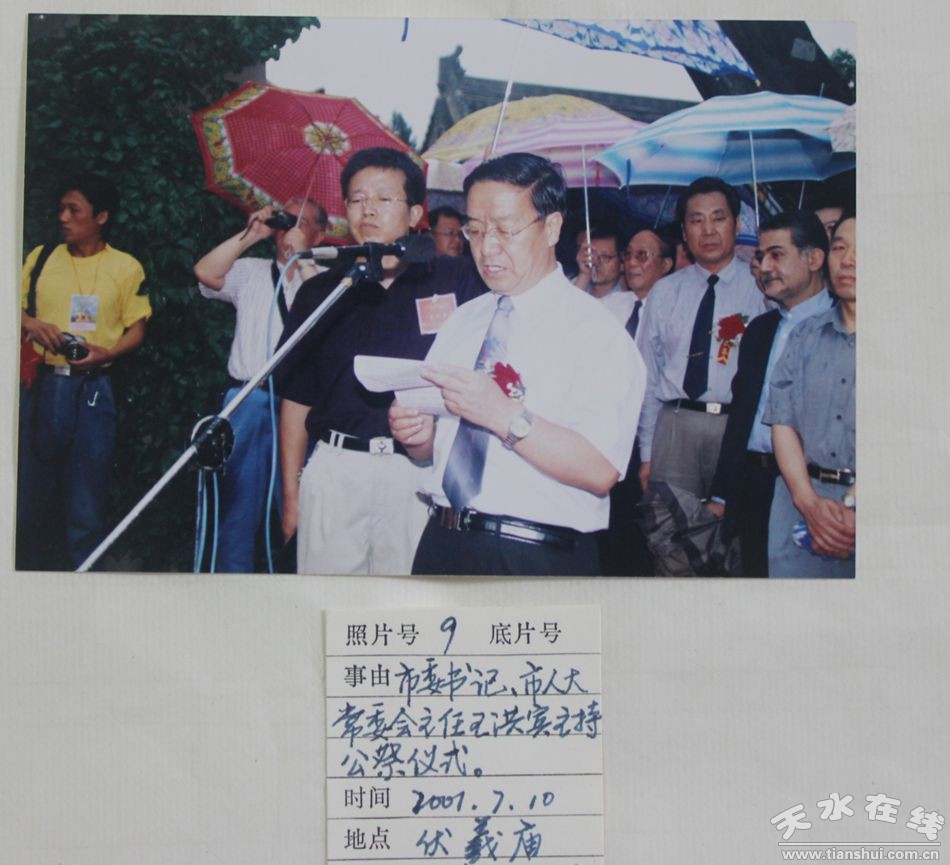 照片号 9 底片号
事由 市委书记、市人大
常委会主任王洪宾主持
公祭仪式。
时间 2001.7.10
地点 伏羲庙
天水在线
www.tianshui.com.cn